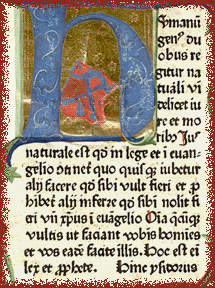 Humanū
gen⁹ du
obus re
gitur na
turali vi
delicet iu
re et mo
ribꝰ Ius
naturale est qđ in lege et i euan
gelio ↄtinet quo quisqꝫ iubetur
alij facere qđ sibi vult fieri et ꝓ
hibet alij inferre qđ sibi nolit fi
eri vn̄ xp̄us i euāgelio Oīa q̄cūqꝫ
vultis ut faciant vobis homīes
et vos eadē facite illis. Hoc est ei
lex et ꝓphete. Hinc ysidorus